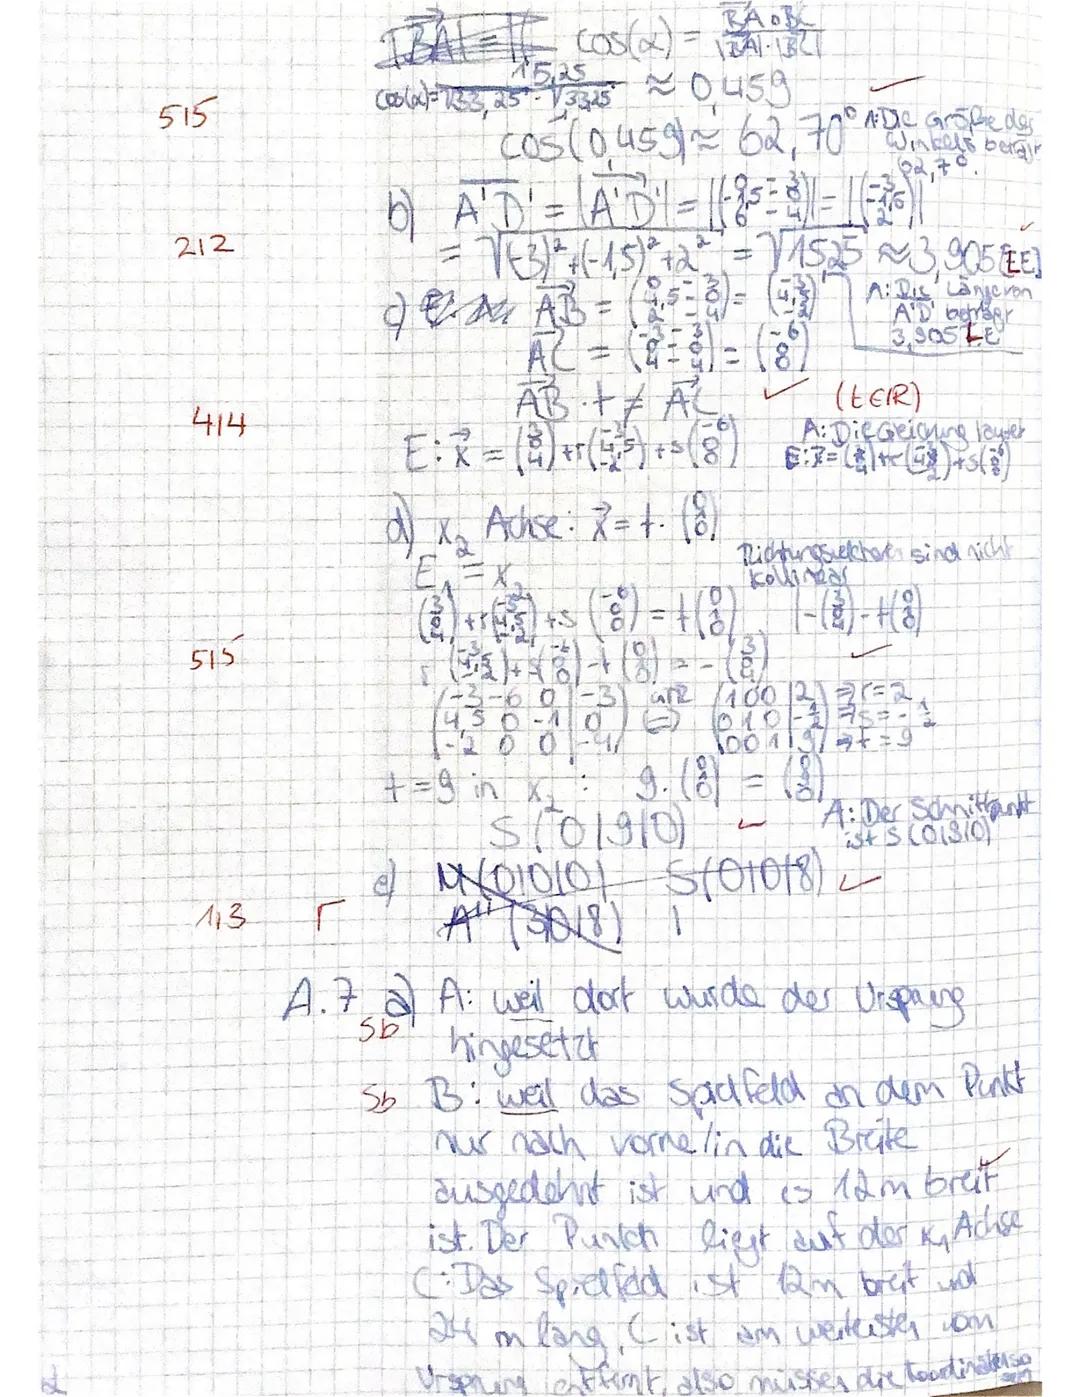 |BA| = cos(α) = BA∘BC / |BA|·|BC|
cos(α) = 15,25 / √33,25 · √33,25 ≈ 0,459
5/5
cos(0,459) ≈ 62,70° A: Die Größe des
Winkels beträgt
62,7°.
b) A'D' = |A'D'| = |(0 - 3 / -1,5 - 0 / 6 - 4)| = |(-3 / -1,5 / 2)|
2/2
= √(-3)² + (-1,5)² + 2² = √15,25 ≈ 3,905 [LE]
A: Die Länge von
A'D' beträgt
3,905 LE
c) AB = (0 - 3 / 4,5 - 0 / 2 - 4) = (-3 / 4,5 / -2)
AC = (-3 - 3 / 0 - 0 / 4 - 4) = (-6 / 0 / 0)
4/4
AB · t ≠ AC (t ∈ ℝ)
A: Die Gleichung lautet
E: x = (3 / 0 / 4) + r(-3 / 4,5 / -2) + s(-6 / 0 / 0)
E: x = (3 / 0 / 4) + r(-3 / 4,5 / -2) + s(-6 / 0 / 0)
d) x₂ Achse: x = t · (0 / 1 / 0)
Richtungsvektoren sind nicht
kollinear
E₁ = x₂
(3 / 0 / 4) + r(-3 / 4,5 / -2) + s(-6 / 0 / 0) = t(0 / 1 / 0) | -(3 / 0 / 4) - t(0 / 1 / 0)
5/5
r(-3 / 4,5 / -2) + s(-6 / 0 / 0) - t(0 / 1 / 0) = -(3 / 0 / 4)
(-3 -6 0 | -3 / 4,5 0 -1 | 0 / -2 0 0 | -4) ⇔ (1 0 0 | 2 / 0 1 0 | -1/2 / 0 0 1 | 9) ⇒ r = 2 ⇒ s = -1/2 ⇒ t = 9
t = 9 in x₂ : 9 · (0 / 1 / 0) = (0 / 9 / 0)
S (0|9|0) A: Der Schnittpunkt
ist S (0|9|0)
e) M (0|0|0) S (0|0|8)
1/3 Γ
A'' (3|0|8)
A.7 a) A: weil dort wurde der Ursprung
Sb
hingesetzt
Sb B: weil das Spielfeld an dem Punkt
nur nach vorne/in die Breite
ausgedehnt ist und es 12m breit
ist. Der Punkt liegt auf der x₁ Achse
C: Das Spielfeld ist 12m breit und
24 m lang, C ist am weitesten vom
Ursprung entfernt, also müssen die Koordinaten so
sein